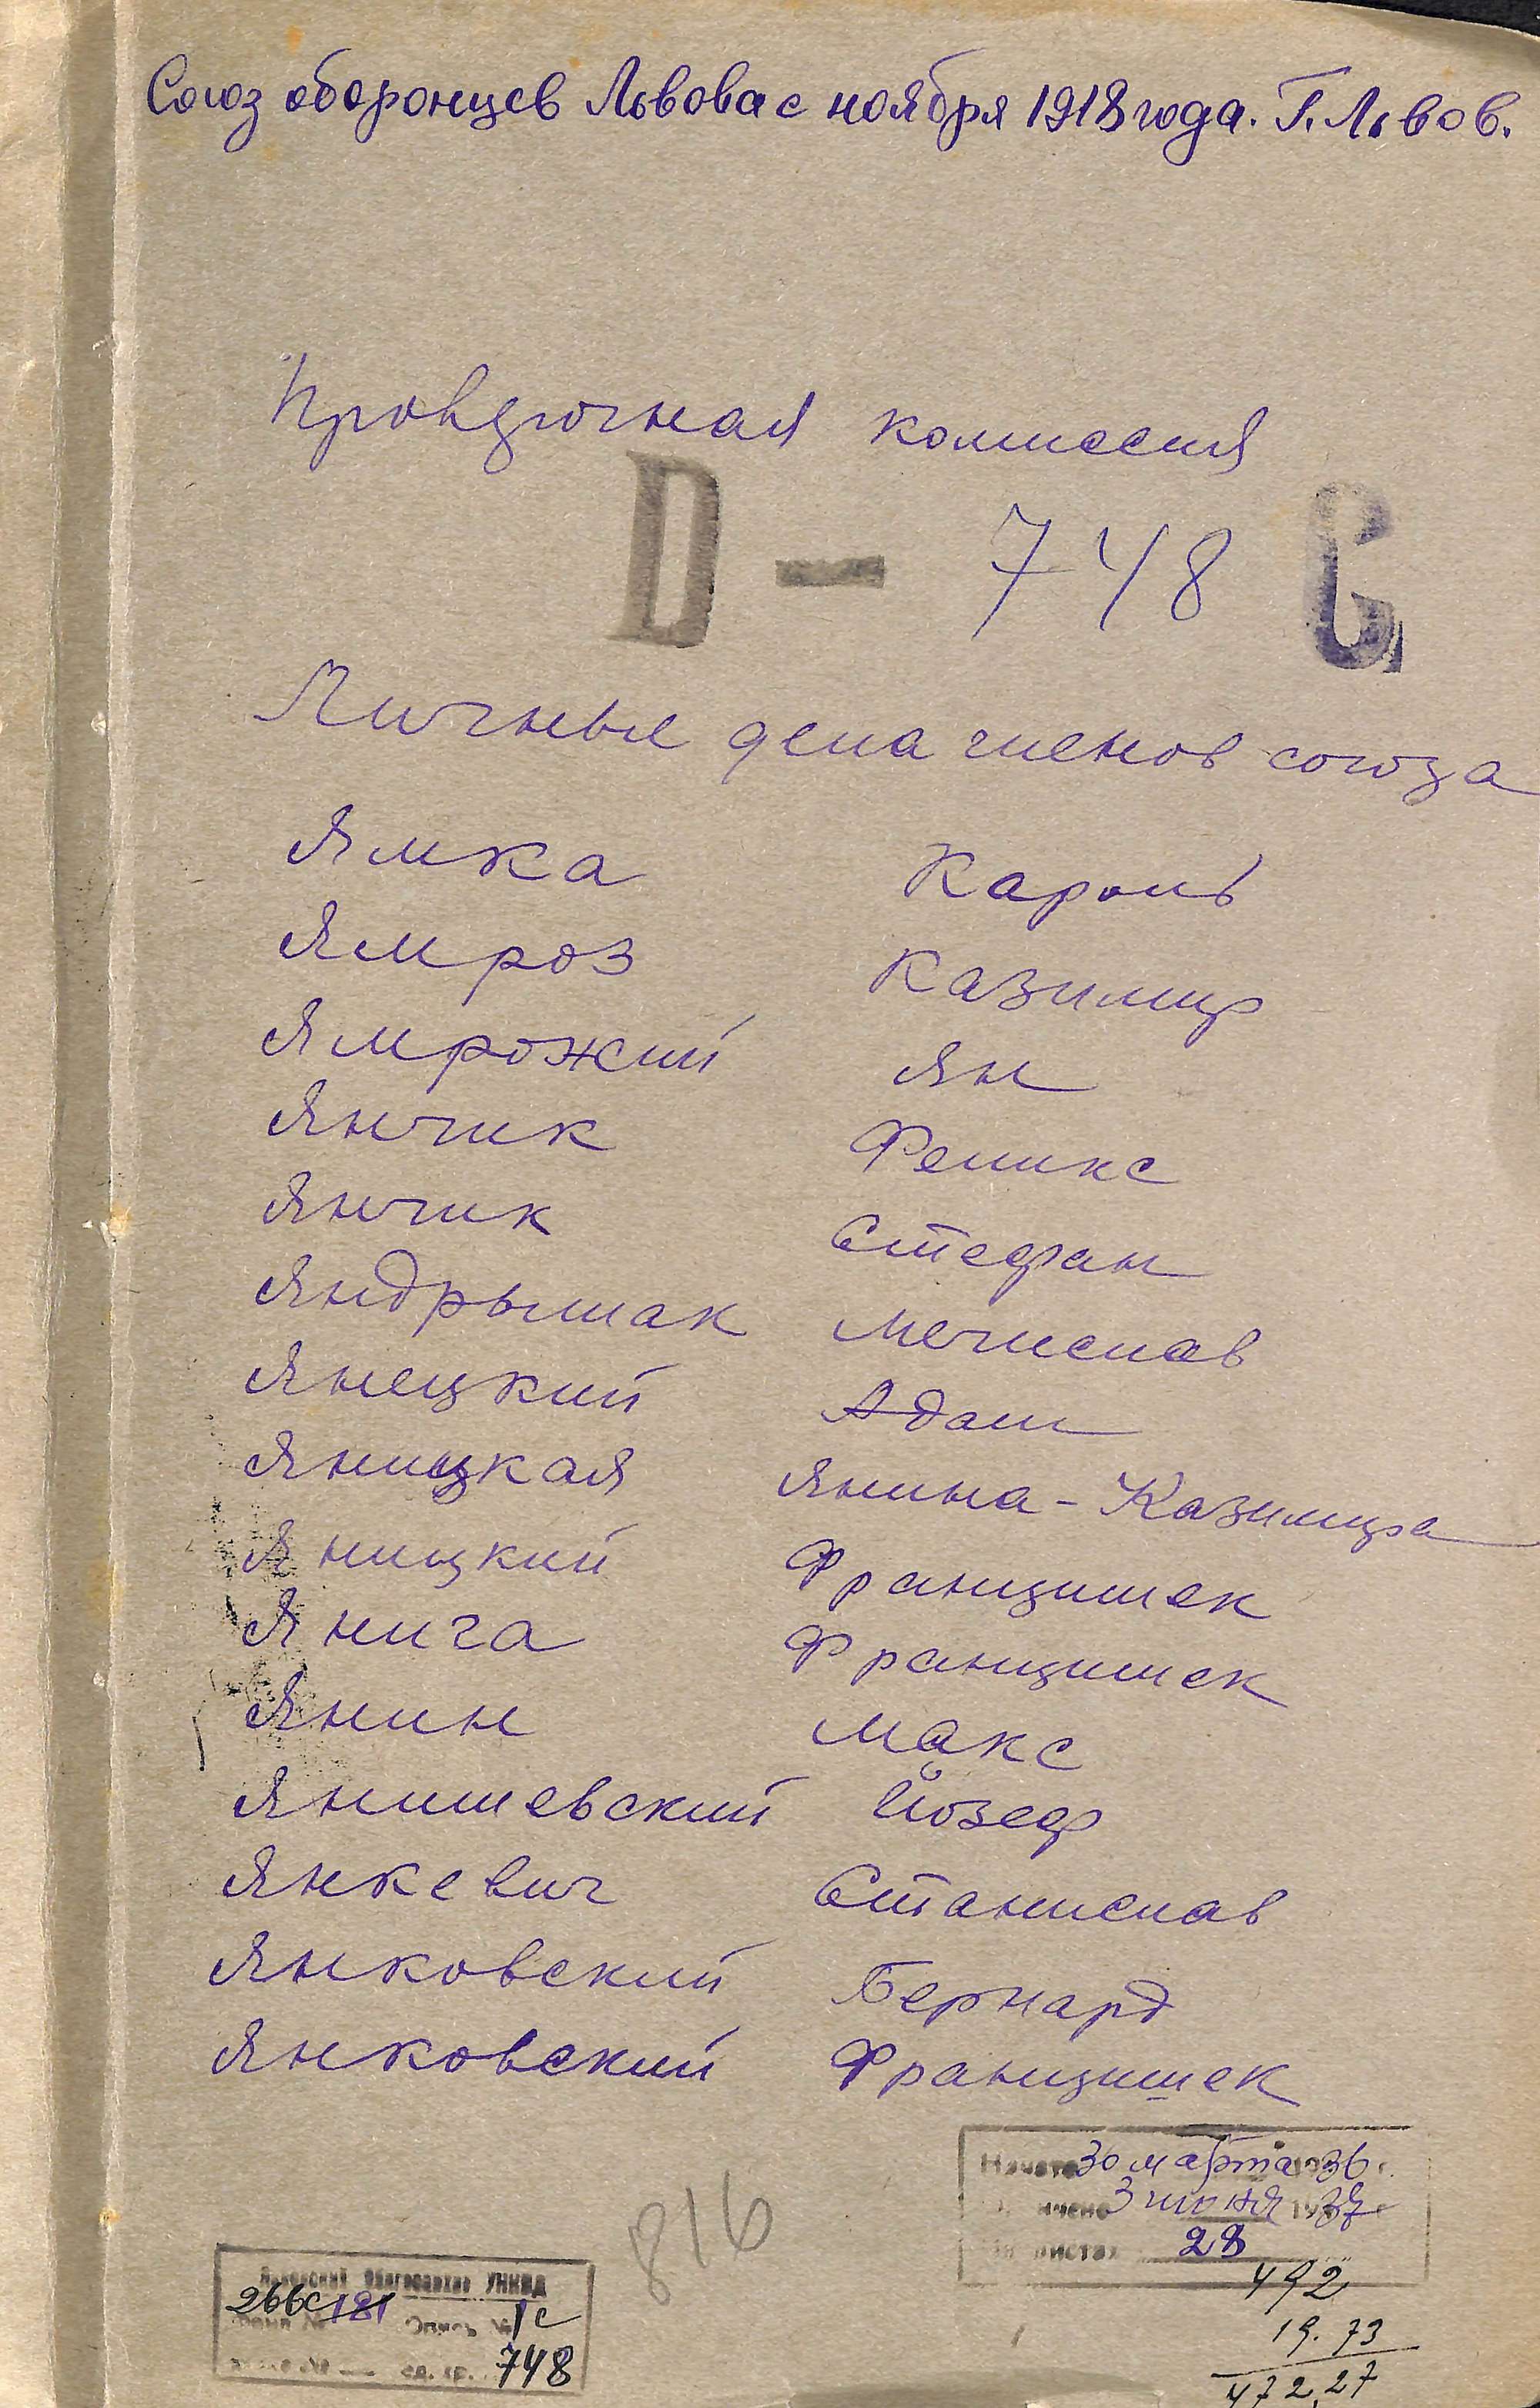 Союз оборонцев Львова с ноября 1918 года. Г. Львов.
комиссия
D — 748 C
Личные дела членов союза
Ямка Кароль
Ямроз Казимир
Ямрожий Ян
Янчик Феликс
Янчик Стефан
Яндрышак Мечислав
Янецкий Адам
Яницкая Янина-Казимира
Яницкий Францишек
Янига Францишек
Янин Макс
Янишевский Йозеф
Янкевич Станислав
Янковский Бернард
Янковский Францишек
Начато 30 марта 1936 г.
3 июня 1937
листах 28
816
492
19.73
472,27
Львовский Облгосархив УНКВД
266с 181 Опись № 1с
ед. хр. 748